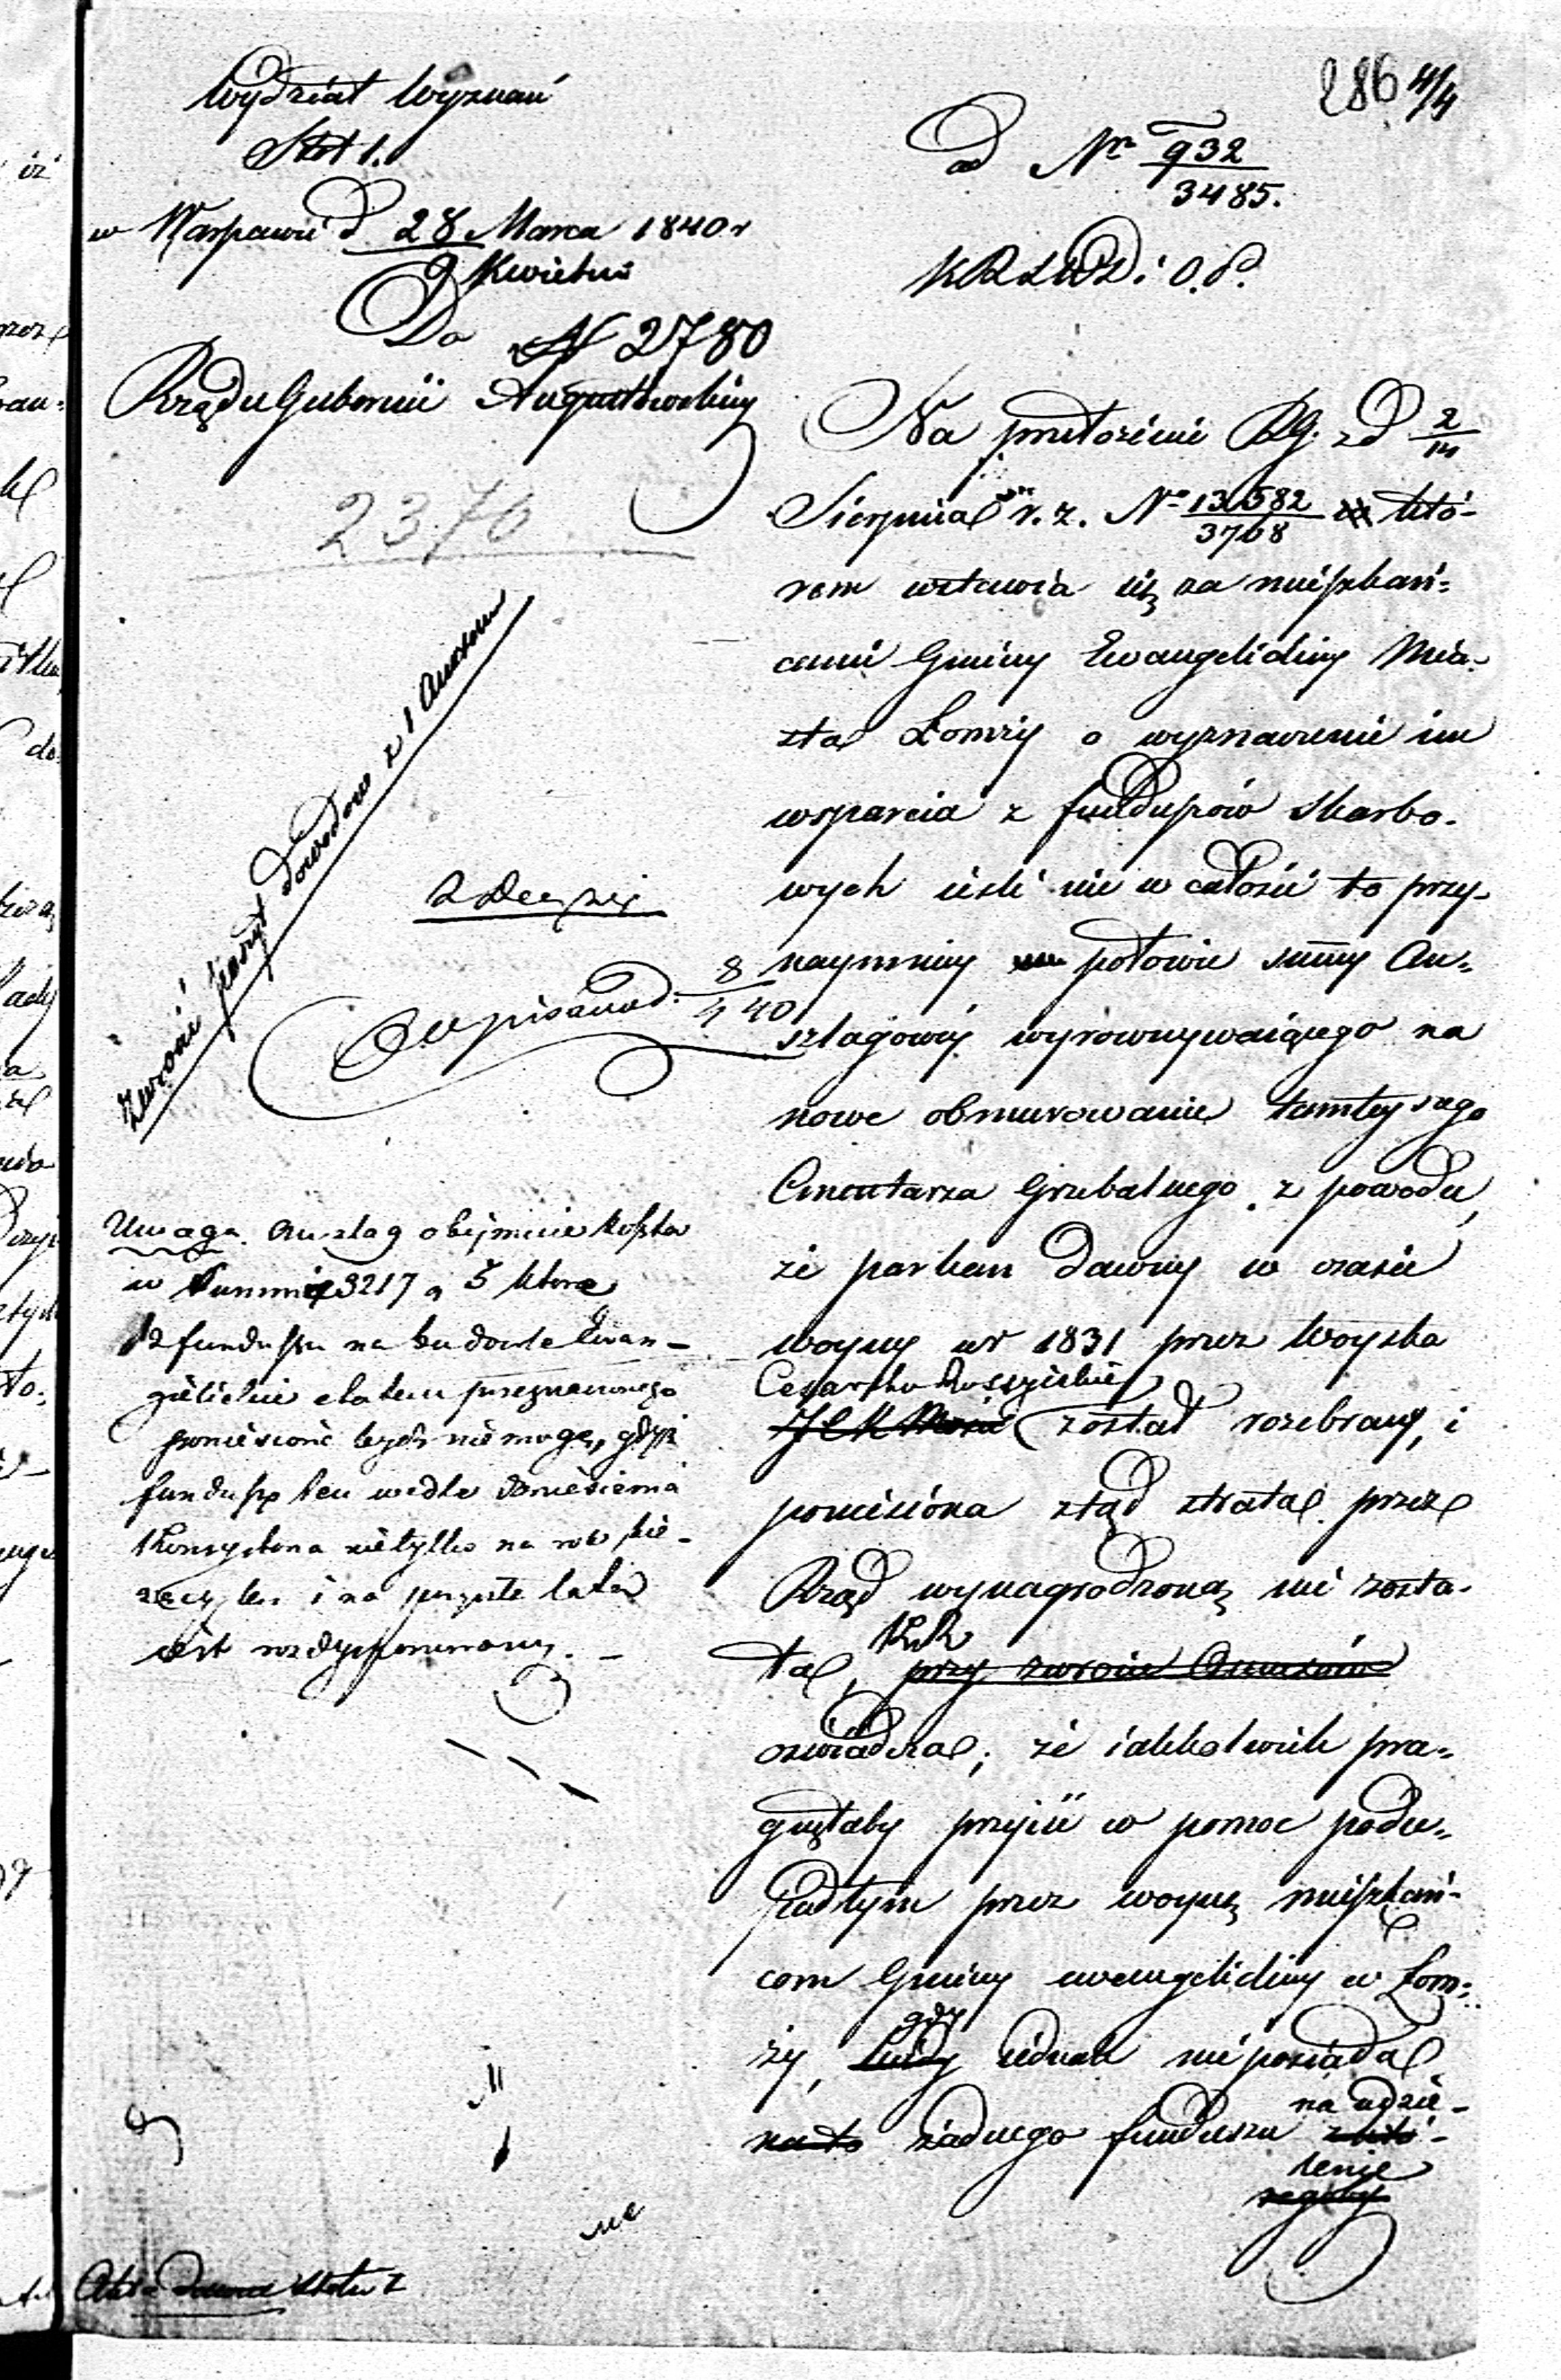 286 4/4
Wydział Wyznań
Stół 1.
w Warszawie d 28 Marca 1840 r
9 Kwietnia
Do N 2780
Rządu Gubernii Augustowskiey
2370
ad Nr 932/3485.
KRSWD i O.P.
Na przełożenie RG. z d 2/14
Sierpnia r. z. No 13,582/3768 któ-
rem wstawia się za mieszkań-
cami Gminy Ewangelickiey Mia-
sta Łomży o wyznaczenie im
wsparcia z funduszów Skarbo-
wych ieśli nie w całości to przy-
naymniey połowie summy An-
szlagowey wyrownywaiącego na
nowe obmurowanie tamteyszego
Cmentarza Grzebalnego z powodu,
że parkan dawny w czasie
woyny w r 1831 przez Woyska
Cesarsko Rossyiskie
został rozebrany, i
poniesiona ztąd strata przez
Rząd wynagrodzoną nie zosta-
ła, KR
przy zwrocie Annexów
oświadcza, że iakkolwiek pra-
gnęłaby przyiść w pomoc podu-
padłym przez woynę mieszkań-
com Gminy ewangelickiey w Łom-
ży, gdy iednak nie posiada
na to żadnego funduszu na udzie-
lenie
Zwrócić dowodów z 1 Annexem
Expedyowano
wpisano d. 8/4 40
Uwaga. Anszlag obeymuie koszta
w Summie 3217 g 5 które
z funduszu na budowle Ewan-
gielickie etatem przeznaczonego
poniesione bydź nie mogą, gdyż
fundusz ten wedle doniesienia
Konsystorza nietylko na rok bie-
żący, lecz i na przyszłe lata
iest rozdysponowany.
Akta Stołu 2